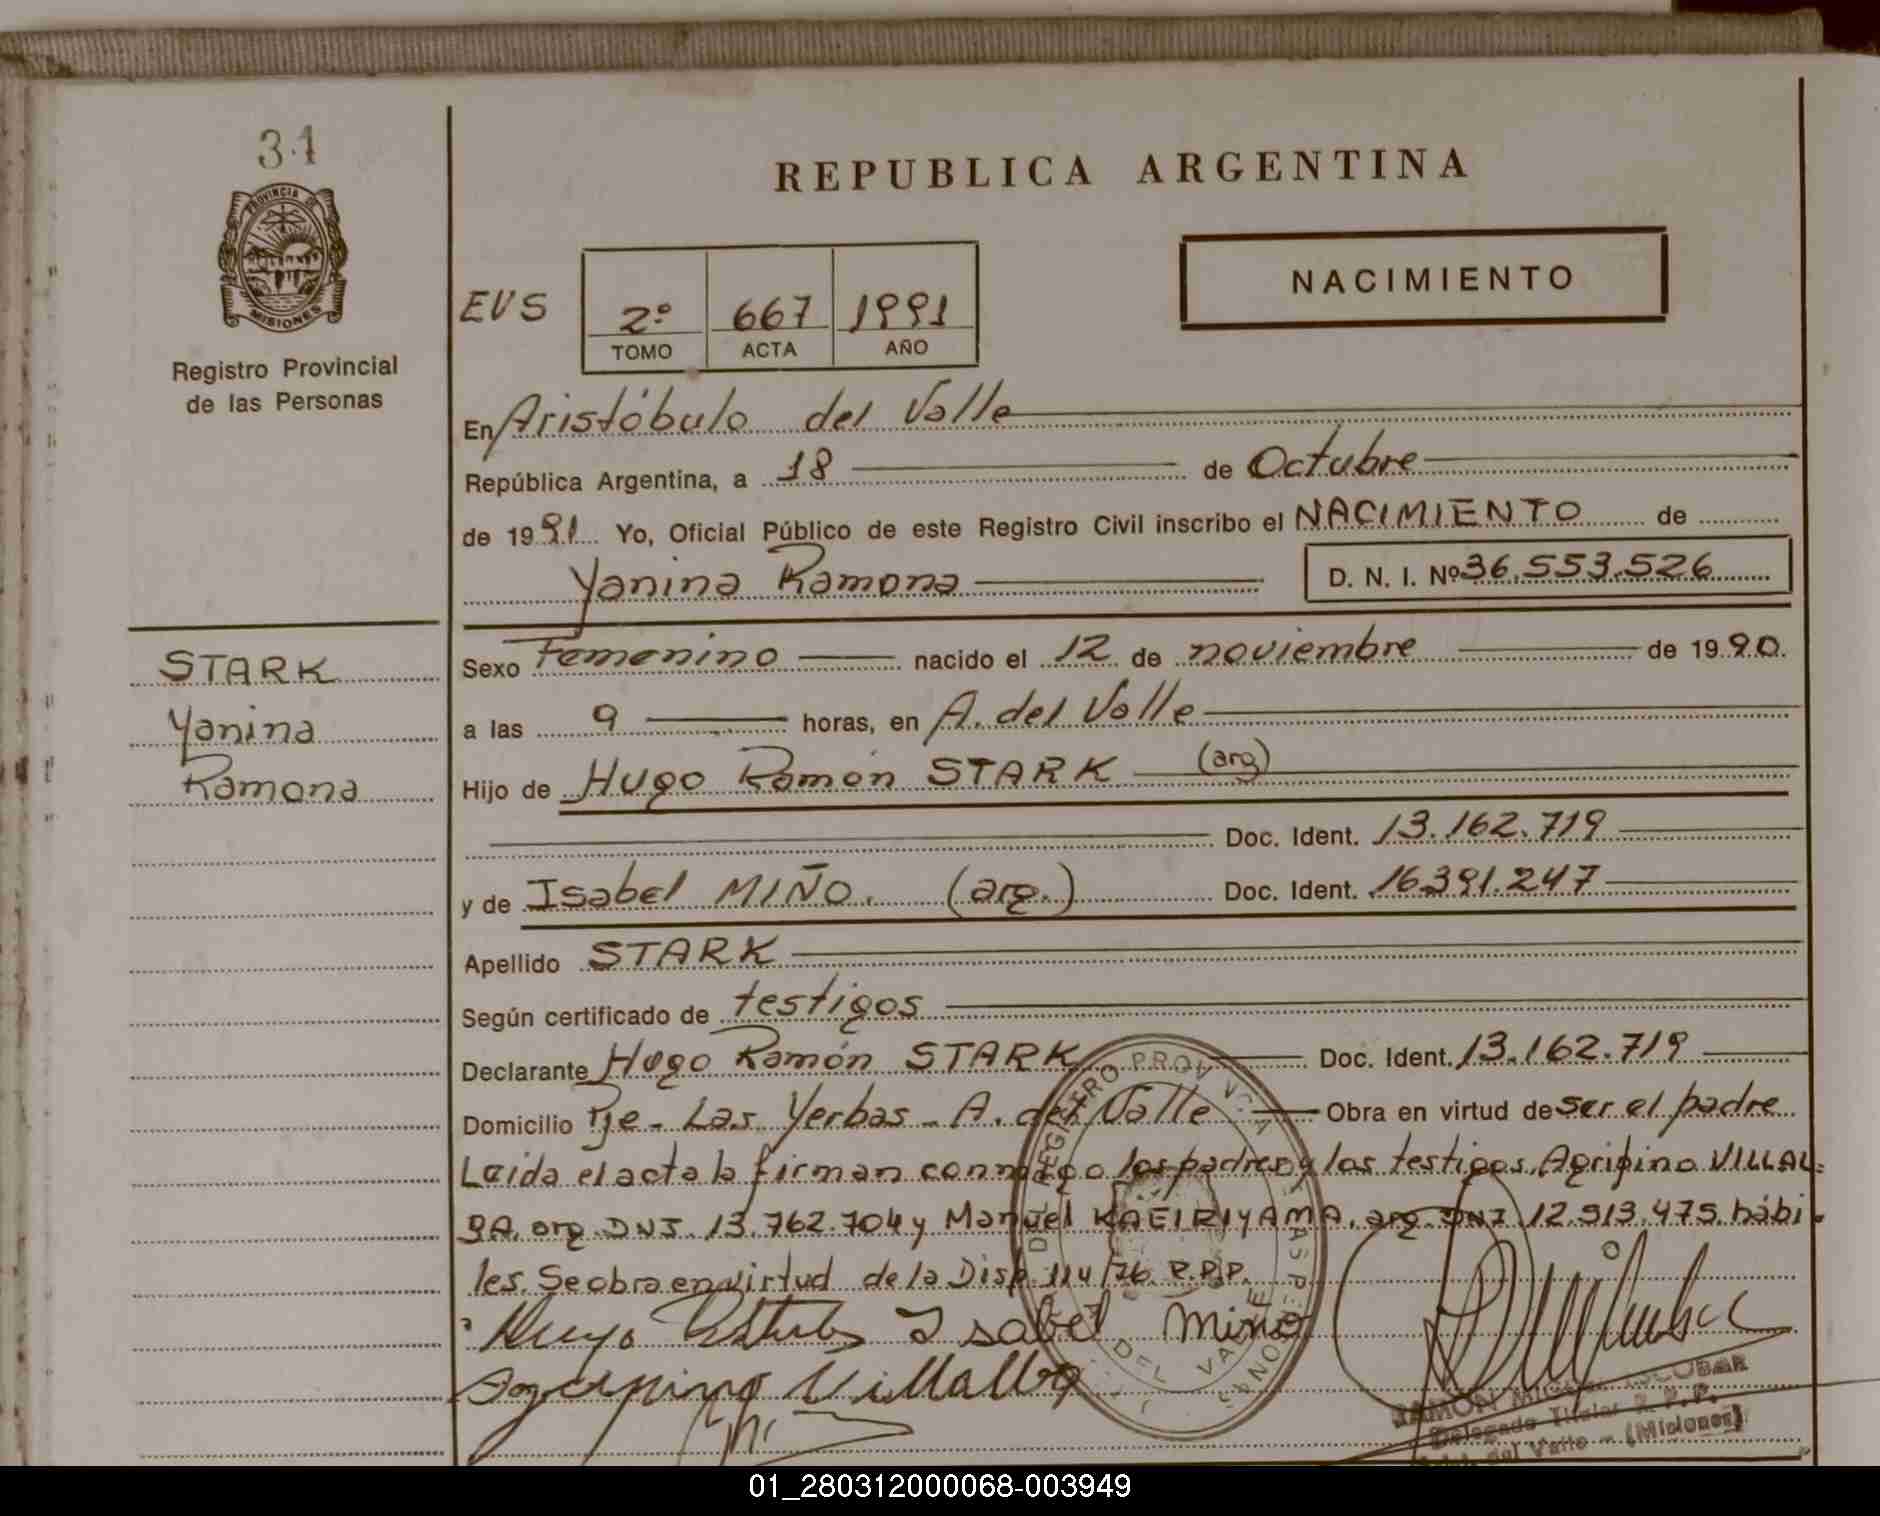 31
PROVINCIA DE
MISIONES
Registro Provincial
de las Personas
STARK
Yanina
Ramona
REPUBLICA ARGENTINA
EVS 2º 667 1991
TOMO ACTA AÑO
NACIMIENTO
En Aristóbulo del Valle
República Argentina, a 18 de Octubre
de 1991 Yo, Oficial Público de este Registro Civil inscribo el NACIMIENTO de
Yanina Ramona D. N. I. Nº 36.553.526
Sexo Femenino nacido el 12 de noviembre de 1990.
a las 9 horas, en A. del Valle
Hijo de Hugo Ramón STARK (arg)
Doc. Ident. 13.162.719
y de Isabel MIÑO. (arg.) Doc. Ident. 16.391.247
Apellido STARK
Según certificado de testigos
Declarante Hugo Ramón STARK Doc. Ident. 13.162.719
Domicilio Pje - Las Yerbas - A. del Valle Obra en virtud de ser el padre
Leida el acta la firman conmigo los padres y los testigos, Agripino VILLAL=
BA, arg. DNI. 13.762.704 y Manuel KAEIRIYAMA, arg. DNI 12.513.475. hábi-
les. Se obra en virtud de la Disp. 114/76 R.P.P.
Hugo Isabel Miño
Villalba
RAMON MIGUEL ESCOBAR
Delegado Titular R. P. P.
del Valle - (Misiones)
REGISTRO PROV
DEL VALLE
01_280312000068-003949